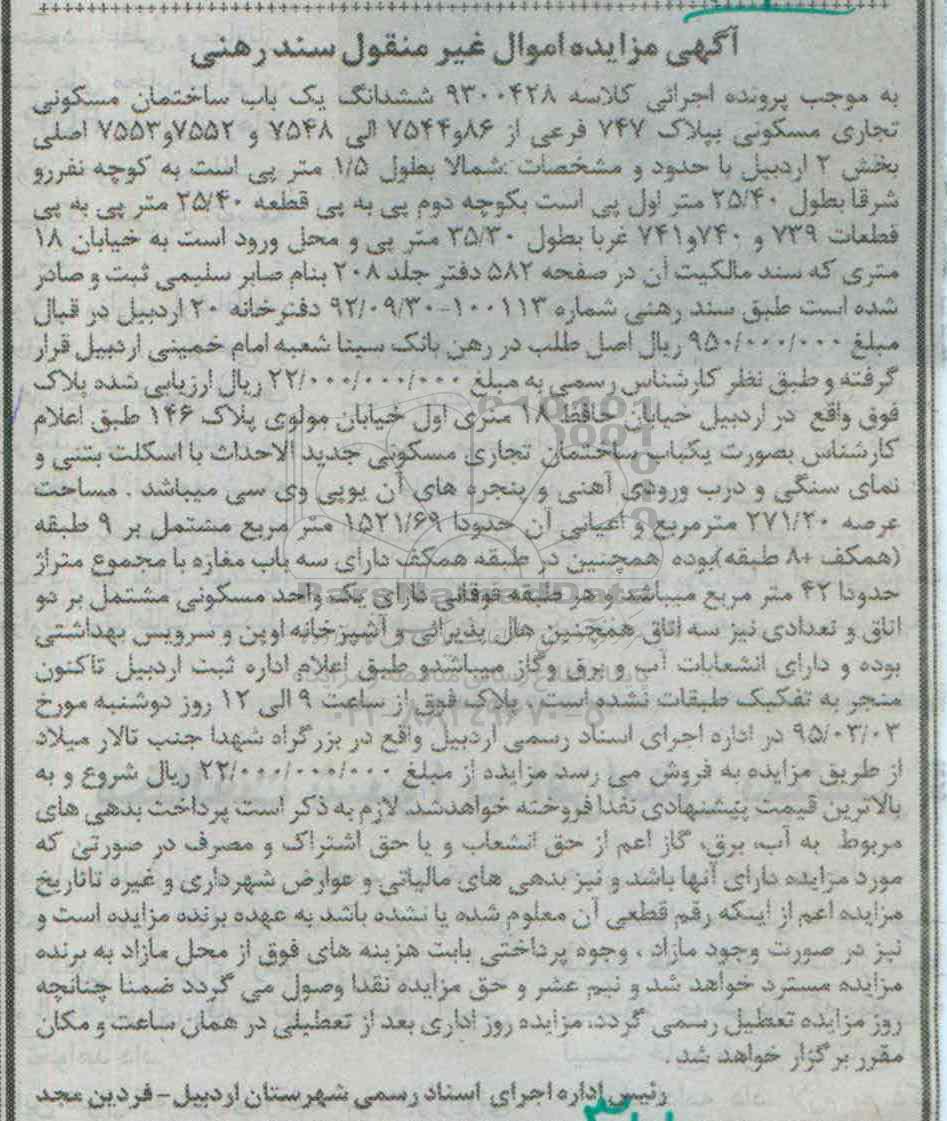 آگهی مزایده اموال غیر منقول سند رهنی
به موجب پرونده اجرائی کلاسه ۹۳۰۰۴۲۸ ششدانگ یک باب ساختمان مسکونی
تجاری مسکونی بپلاک ۷۴۷ فرعی از ۸۶و۷۵۴۴ الی ۷۵۴۸ و ۷۵۵۲و۷۵۵۳ اصلی
بخش ۲ اردبیل با حدود و مشخصات :شمالا بطول ۱/۵ متر پی است به کوچه نفررو
شرقا بطول ۲۵/۴۰ متر اول پی است بکوچه دوم پی به پی قطعه ۲۵/۴۰ متر پی به پی
قطعات ۷۳۹ و ۷۴۰و۷۴۱ غربا بطول ۳۵/۳۰ متر پی و محل ورود است به خیابان ۱۸
متری که سند مالکیت آن در صفحه ۵۸۲ دفتر جلد ۲۰۸ بنام صابر سلیمی ثبت و صادر
شده است طبق سند رهنی شماره ۱۰۰۱۱۳-۹۲/۰۹/۳۰ دفترخانه ۲۰ اردبیل در قبال
مبلغ ۹۵۰/۰۰۰/۰۰۰ ریال اصل طلب در رهن بانک سینا شعبه امام خمینی اردبیل قرار
گرفته و طبق نظر کارشناس رسمی به مبلغ ۲۲/۰۰۰/۰۰۰/۰۰۰ ریال ارزیابی شده پلاک
فوق واقع در اردبیل خیابان حافظ ۱۸ متری اول خیابان مولوی پلاک ۱۴۶ طبق اعلام
کارشناس بصورت یکباب ساختمان تجاری مسکونی جدید الاحداث با اسکلت بتنی و
نمای سنگی و درب ورودی آهنی و پنجره های آن یوپی وی سی میباشد . مساحت
عرصه ۲۷۱/۲۰ مترمربع و اعیانی آن حدودا ۱۵۲۱/۶۹ متر مربع مشتمل بر ۹ طبقه
(همکف +۸ طبقه)بوده همچنین در طبقه همکف دارای سه باب مغازه با مجموع متراژ
حدودا ۴۲ متر مربع میباشد و هر طبقه فوقانی دارای یک واحد مسکونی مشتمل بر دو
اتاق و تعدادی نیز سه اتاق همچنین هال پذیرائی و آشپزخانه اوپن و سرویس بهداشتی
بوده و دارای انشعابات آب و برق وگاز میباشدو طبق اعلام اداره ثبت اردبیل تاکنون
منجر به تفکیک طبقات نشده است . پلاک فوق از ساعت ۹ الی ۱۲ روز دوشنبه مورخ
۹۵/۰۳/۰۳ در اداره اجرای اسناد رسمی اردبیل واقع در بزرگراه شهدا جنب تالار میلاد
از طریق مزایده به فروش می رسد مزایده از مبلغ ۲۲/۰۰۰/۰۰۰/۰۰۰ ریال شروع و به
بالاترین قیمت پیشنهادی نقدا فروخته خواهدشد. لازم به ذکر است پرداخت بدهی های
مربوط به آب، برق، گاز اعم از حق انشعاب و یا حق اشتراک و مصرف در صورتی که
مورد مزایده دارای آنها باشد و نیز بدهی های مالیاتی و عوارض شهرداری و غیره تاتاریخ
مزایده اعم از اینکه رقم قطعی آن معلوم شده یا نشده باشد به عهده برنده مزایده است و
نیز در صورت وجود مازاد ، وجوه پرداختی بابت هزینه های فوق از محل مازاد به برنده
مزایده مسترد خواهد شد و نیم عشر و حق مزایده نقدا وصول می گردد ضمنا چنانچه
روز مزایده تعطیل رسمی گردد، مزایده روز اداری بعد از تعطیلی در همان ساعت و مکان
مقرر برگزار خواهد شد .
رئیس اداره اجرای اسناد رسمی شهرستان اردبیل - فردین مجد